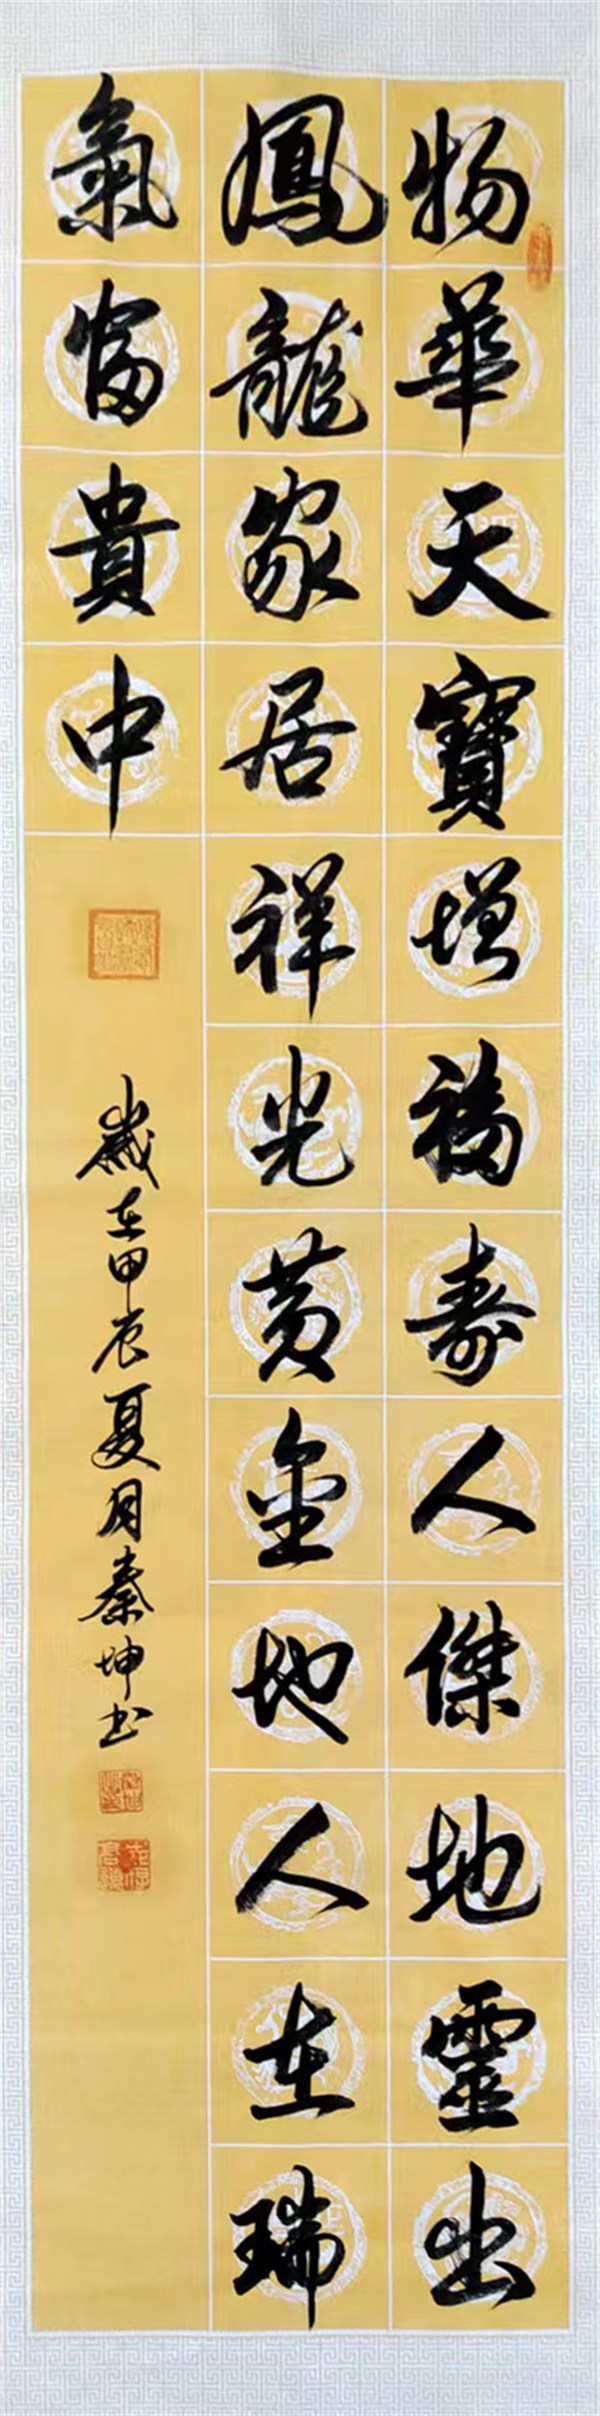 物華天寶增福壽人傑地靈出
鳳龍家居祥光黄金地人在瑞
氣富貴中
歲在甲辰夏月秦坤书